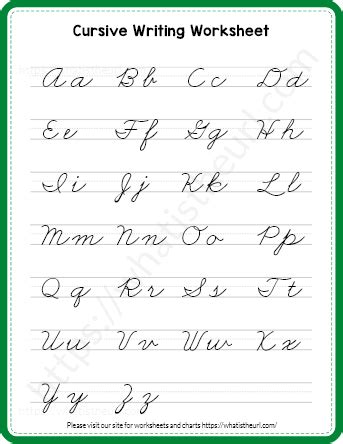 Cursive Writing Worksheet
Aa Bb Cc Dd
Ee Ff Gg Hh
Ii Jj Kk Ll
Mm Nn Oo Pp
Qq Rr Ss Tt
Uu Vv Ww Xx
Yy Zz
https://whatistheurl.com
Please visit our site for worksheets and charts https://whatistheurl.com/